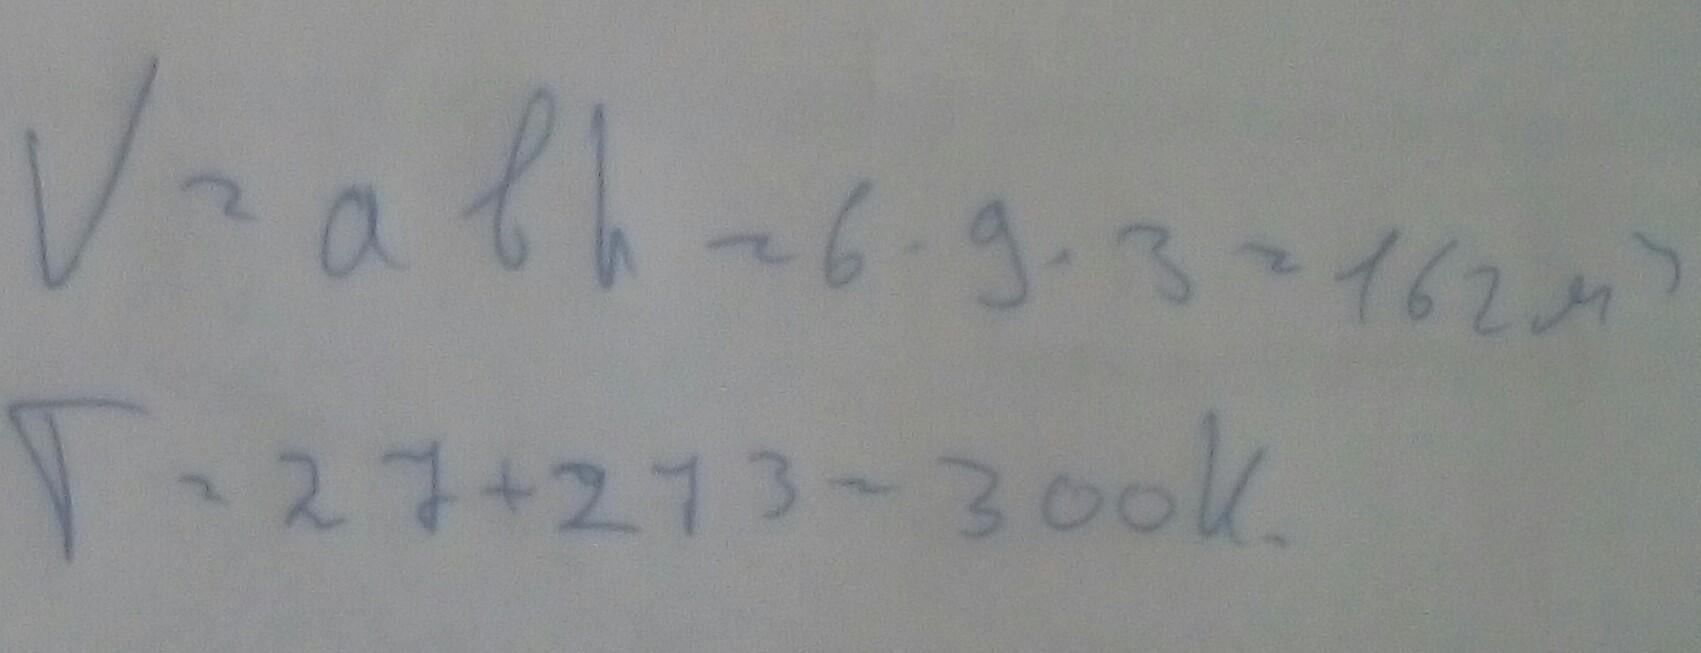 V = a b h = 6 · 9 · 3 = 162 м³
T = 27 + 273 = 300 K.